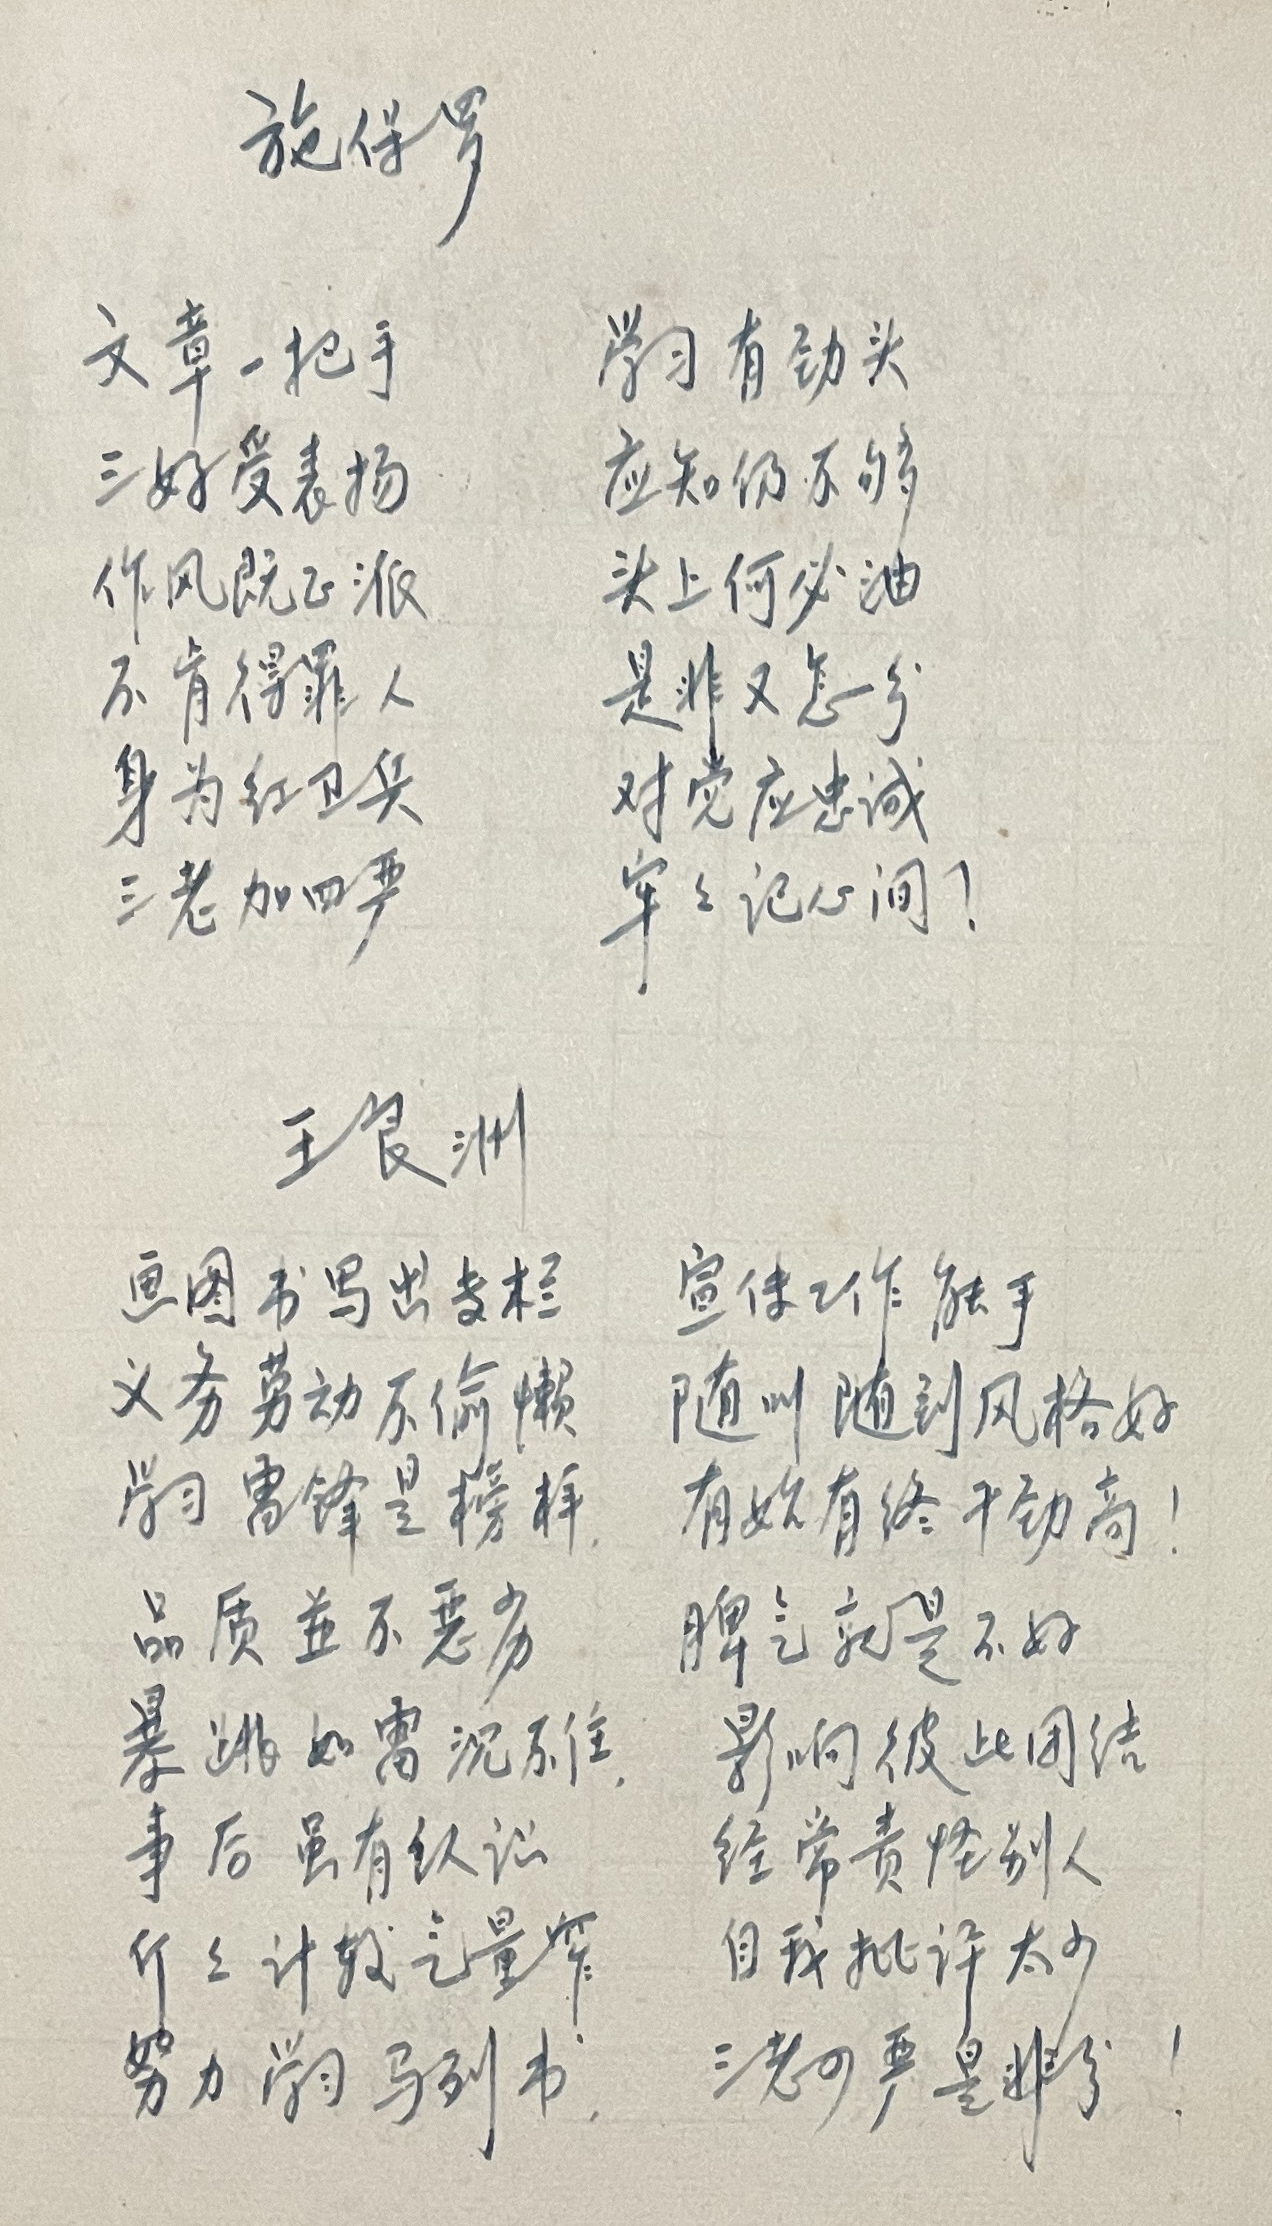 施保罗
文章一把手 学习有劲头
三好受表扬 应知仍不够
作风既正派 头上何必油
不肯得罪人 是非又怎分
身为红卫兵 对党应忠诚
三老加四严 牢々记心间！
王良洲
画图书写出专栏 宣传工作能手
义务劳动不偷懒 随叫随到风格好
学习雷锋是榜样. 有始有终干劲高！
品质並不恶劣 脾气就是不好
暴跳如雷沉不住. 影响彼此团结
事后虽有认识 经常责怪别人
斤々计较气量窄 自我批评太少
努力学习马列书. 三老四严是非分！